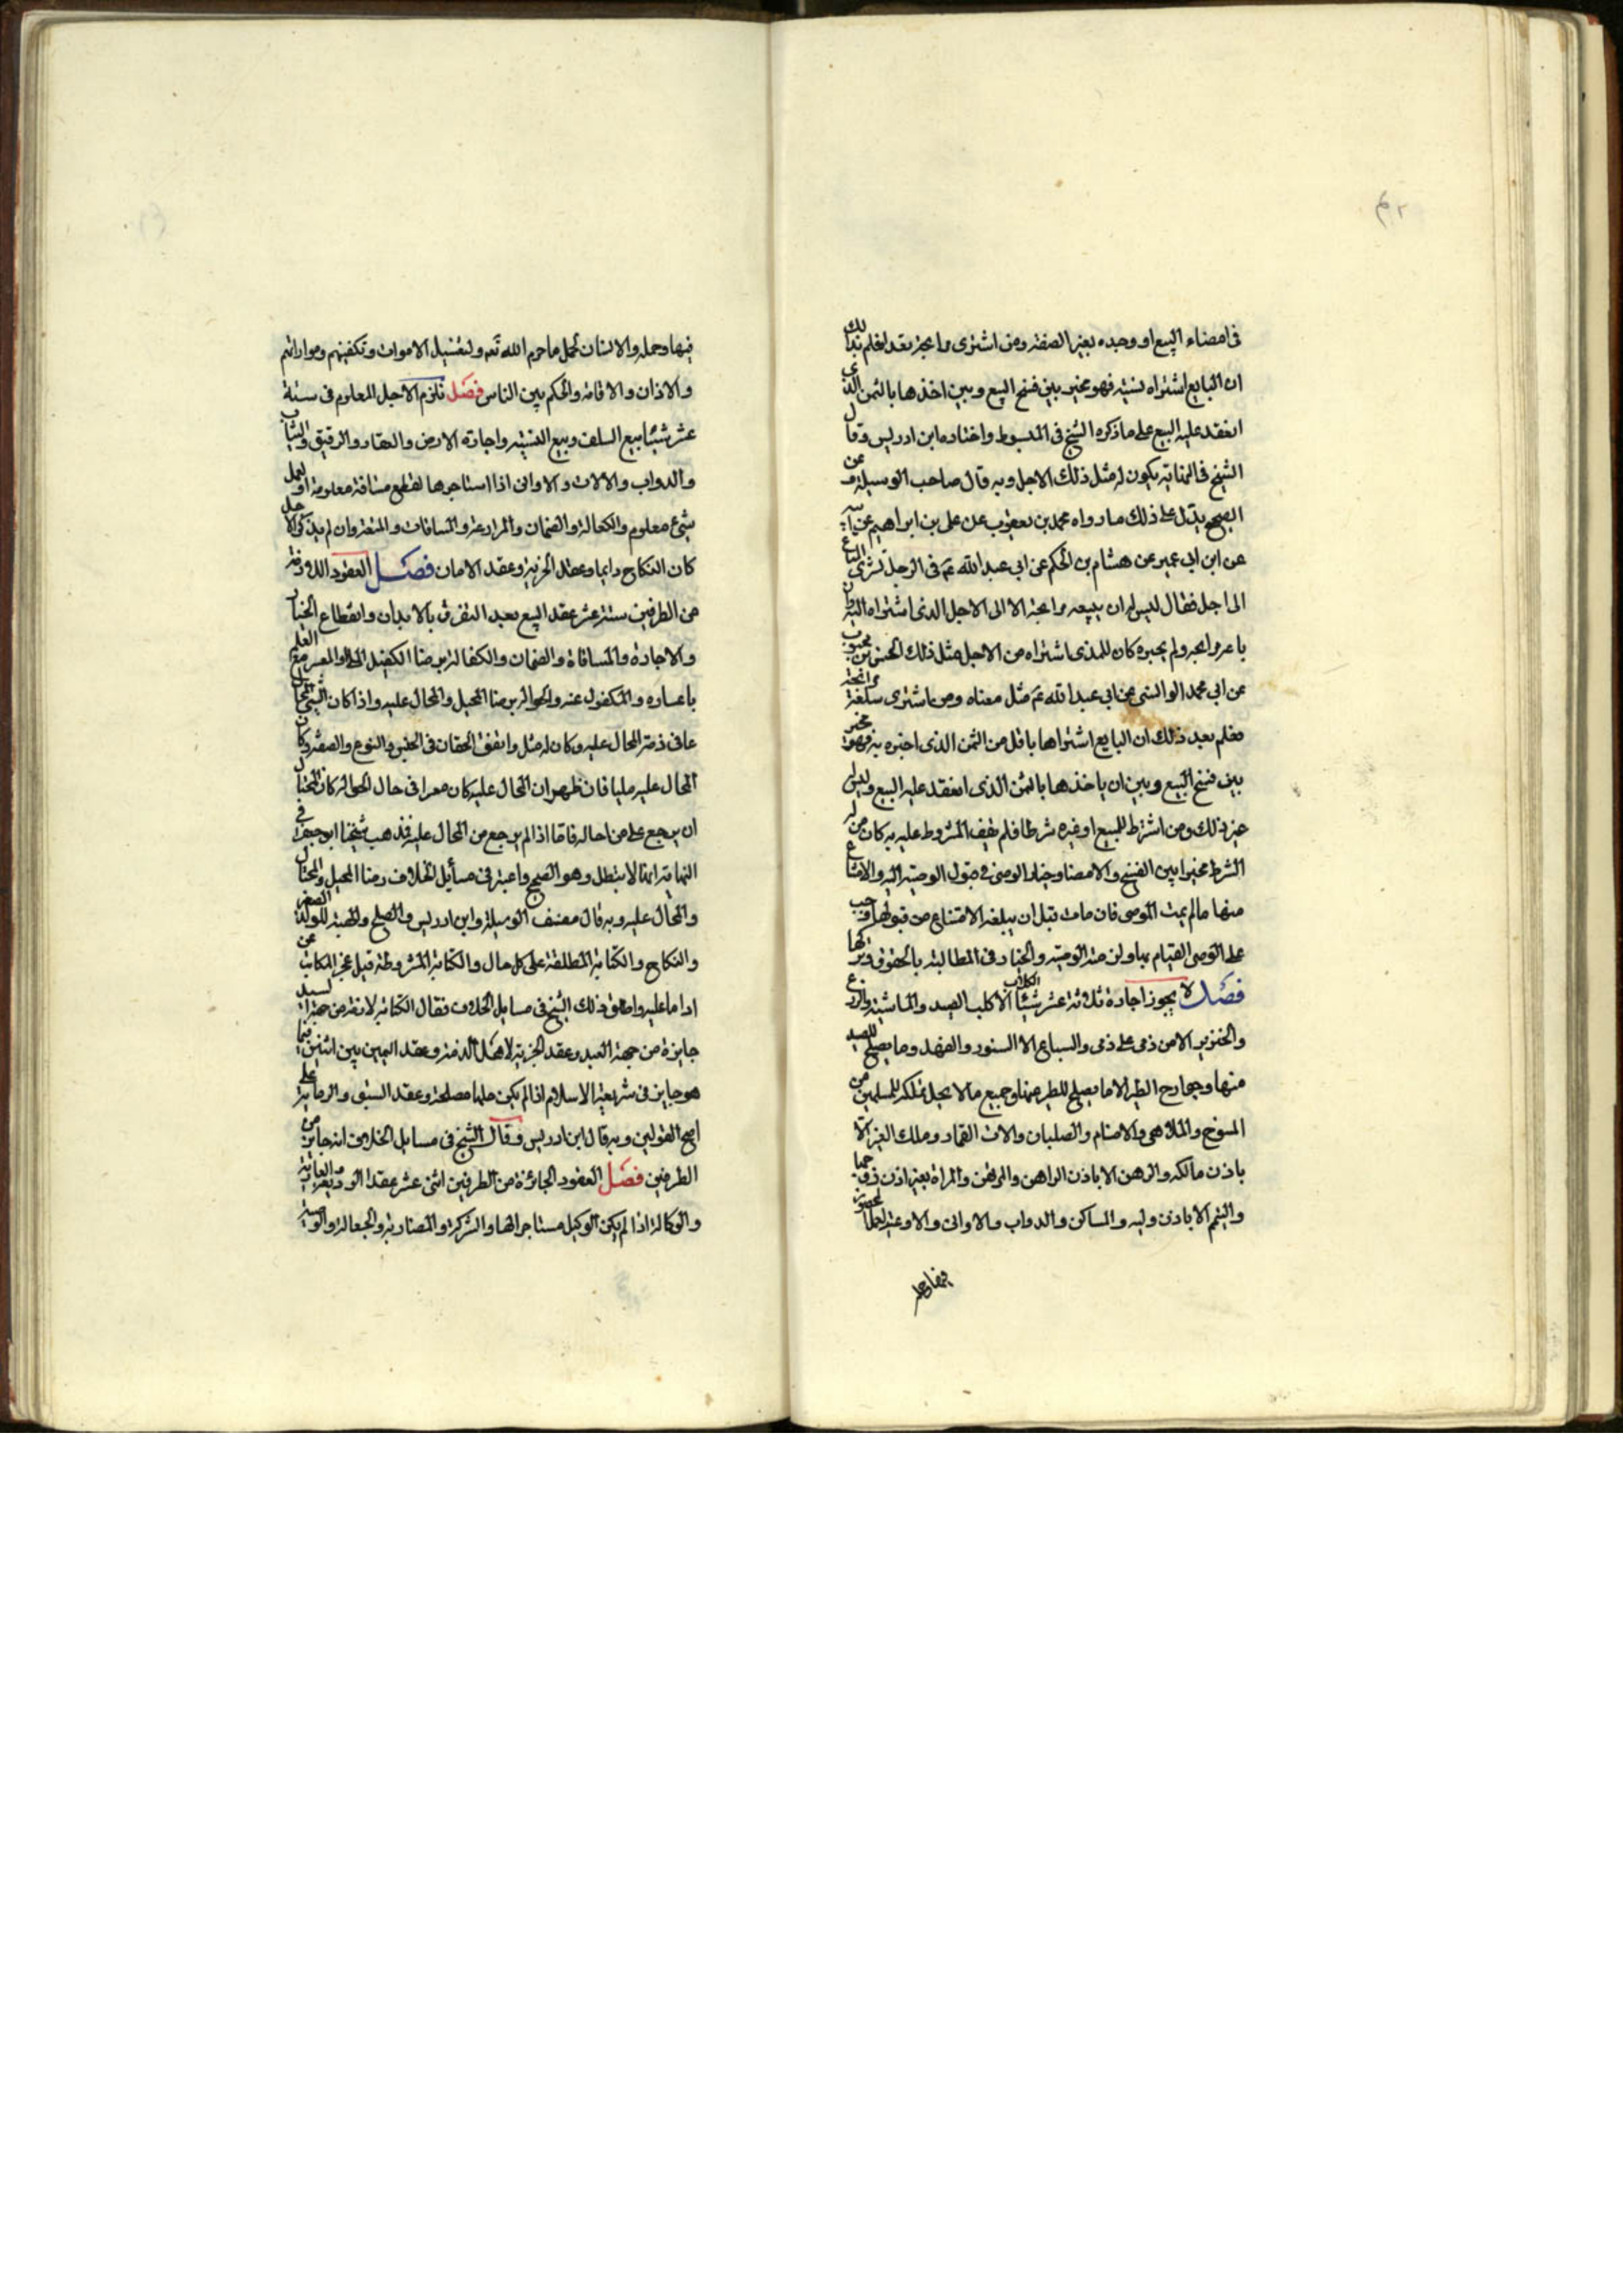 في امضاء البيع او وجده بغير الصفة ومن اشترى مرابحة بنقد فعلم بذلك
ان البايع اشتراه نسيئة فهو مخير بين فسخ البيع وبين اخذها بالثمن الذي
انعقد عليه البيع على ما ذكره الشيخ في المبسوط واختاره ابن ادريس وقال
الشيخ في النهاية يكون له مثل ذلك الاجل وبه قال صاحب الوسيلة وعن
الصحيح يدل على ذلك ما رواه محمد بن يعقوب عن علي بن ابراهيم عن ابيه
عن ابن ابي عمير عن هشام بن الحكم عن ابي عبد الله عم في الرجل يشتري المتاع
الى اجل فقال ليس له ان يبيعه مرابحة الا الى الاجل الذي اشتراه اليه وان
باعه مرابحة ولم يخبره كان للذي اشتراه من الاجل مثل ذلك الحسن بن محبوب
عن ابي محمد الوابشي عن ابي عبد الله عم مثل معناه ومن اشترى سلعة مرابحة
فعلم بعد ذلك ان البايع اشتراها باقل من الثمن الذي اخبره به فهو مخير
بين فسخ البيع وبين ان ياخذها بالثمن الذي انعقد عليه البيع وليس له
غير ذلك ومن اشترط للبيع او غيره شرطا فلم يف المشروط عليه به كان من له
الشرط مخيرا بين الفسخ والامضا وخيار الوصي في قبول الوصية اليه والامتناع
منها ما لم يمت الموصي فان مات قبل ان يبلغه الامتناع من قبولها وجب
على الوصي القيام بها ولزمته الوصية والخيار في المطالبة بالحقوق وتركها
فصل لا يجوز اجارة ثلاثة عشر شيئا الكلاب الا كلب الصيد والماشية والزرع
والخنزير الا من ذمي على ذمي والسباع الا السنور والفهد وما يصلح للصيد
منها وجوارح الطير الا ما يصلح للطير منها وجميع ما لا يحل تملكه للمسلمين من
المسوخ والملاهي والاصنام والصلبان والات القمار وملك الغير الا
باذن مالكه والرهن الا باذن الراهن والمرتهن والمراة بغير اذن زوجها
واليتم الا باذن وليه والمساكن والدواب والاواني والاوعية لعمل محظور
فيها وحمله والانسان لحمل ما حرم الله تعه ولتغسيل الاموات وتكفينهم ومواراتهم
والاذان والاقامة والحكم بين الناس فصل تلزم الاجل المعلوم في ستة
عشر شيئا بيع السلف وبيع النسيئة واجارة الارض والعقار والرقيق والثياب
والدواب والالات والاواني اذا استاجرها لقطع مسافة معلومة او لعمل
شيء معلوم والكفالة والضمان والمزارعة والمساقات والمتعة وان لم يذكر الاجل
كان النكاح دايما وعقد الجزية وعقد الامان فصل العقود اللازمة
من الطرفين ستة عشر عقد البيع بعد التفرق بالابدان وانقطاع الخيار
والاجارة والمساقاة والضمان والكفالة برضا الكفيل الملي او المعسر مع العلم
باعساره والمكفول عنه والحوالة برضا المحيل والمحال عليه واذا كان الشي المحال
عافي ذمة المحال عليه وكان له مثل واتفق الحقان في الجنس والنوع والصفة وكان
المحال عليه مليا فان ظهر ان المحال عليه كان معسرا في حال الحوالة كان للمحتال
ان يرجع على من احاله فاما اذا لم يرجع من المحال عليه فذهب شيخنا ابو جعفر في
النهاية انها لا تبطل وهو الصحيح واعتبر في مسائل الخلاف رضا المحيل والمحتال
والمحال عليه وبه قال مصنف الوسيلة وابن ادريس والصلح والهبة للولد الصغير
والنكاح والكتابة المطلقة على كل حال والكتابة المشروطة قبل عجز المكاتب عن
ادا ما عليه واطلق ذلك الشيخ في مسايل الخلاف فقال الكتابة لازمة من جهة السيد
جايزة من جهة العبد وعقد الجزية لاهل الذمة وعقد اليمين بين اثنين فيما
هو جايز في شريعة الاسلام اذا لم يكن حلها مصلحة وعقد السبق والرماية على
اصح القولين وبه قال ابن ادريس وقال الشيخ في مسايل الخلاف انه جايز من
الطرفين فصل العقود الجائزة من الطرفين اثنى عشر عقد الوديعة والعارية
والوكالة اذا لم يكن الوكيل مستاجرا لها والشركة والمضاربة والجعالة والوصية